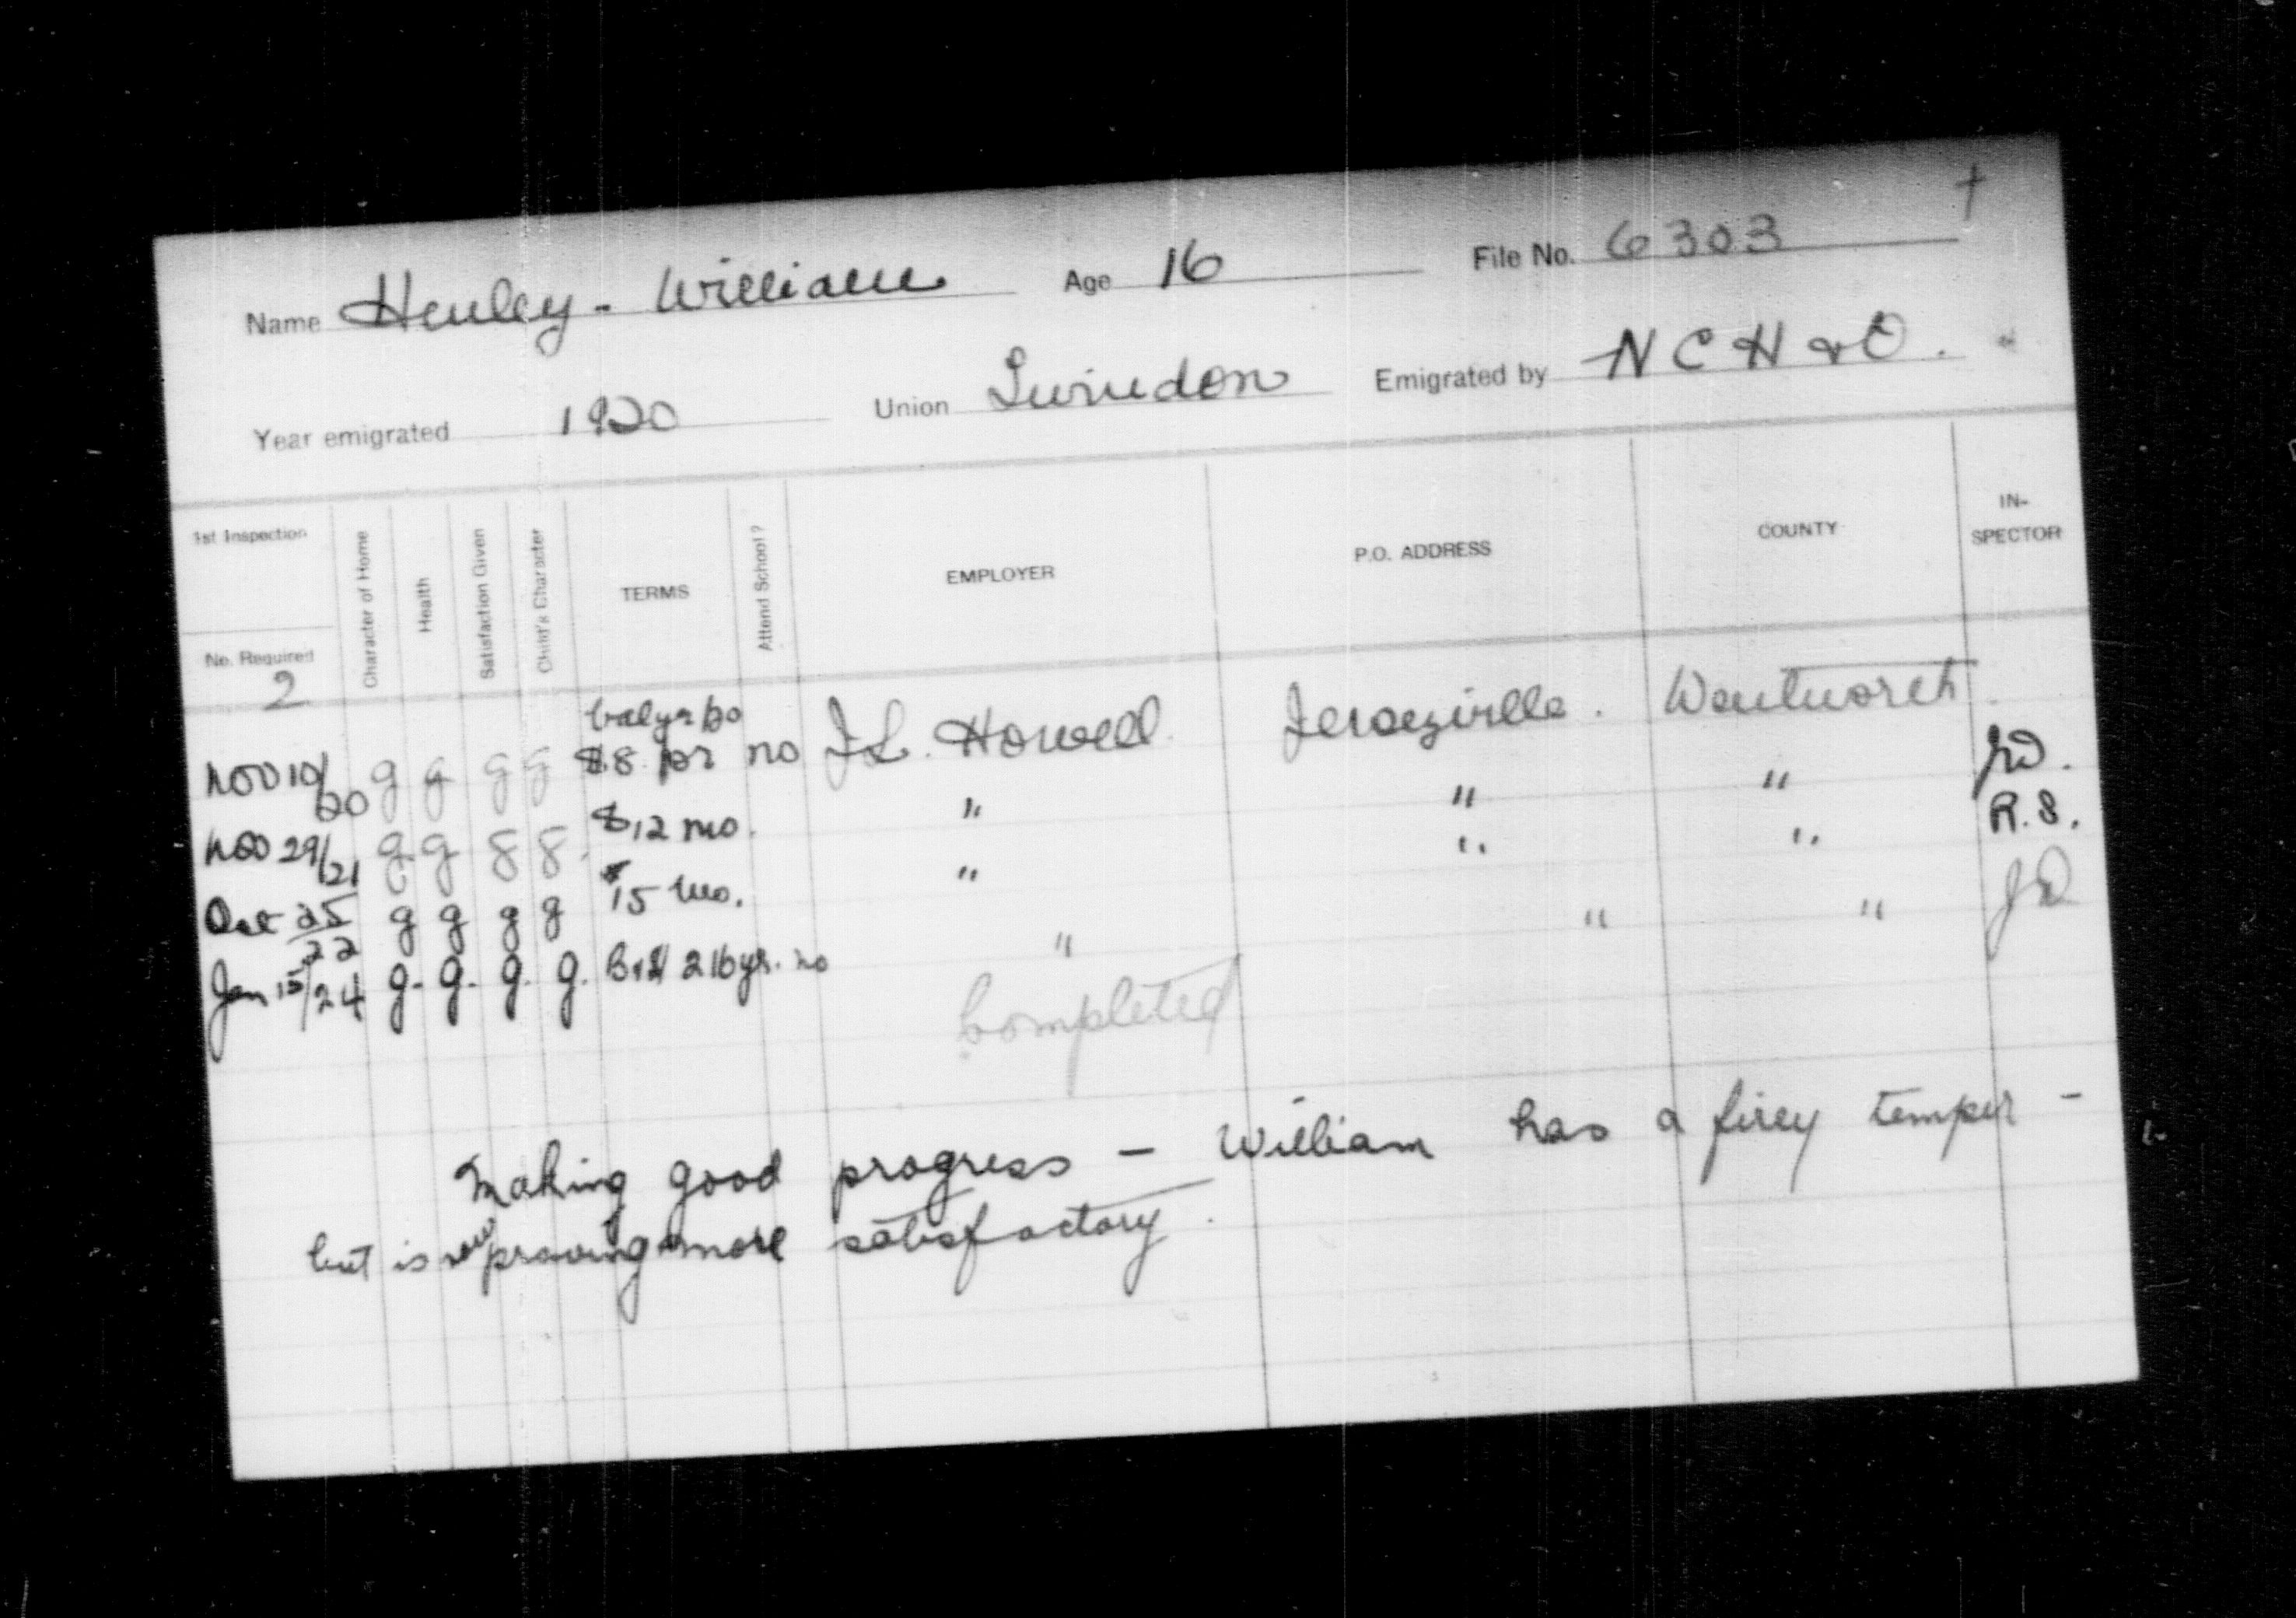 †
Name Henley - William Age 16 File No. 6303
Year emigrated 1920 Union Swindon Emigrated by N C H & O.
1st Inspection
No. Required
2
Character of Home
Health
Satisfaction Given
Child's Character
TERMS
Attend School?
EMPLOYER
P.O. ADDRESS
COUNTY
IN-
SPECTOR
Nov 10/20 g g g g $8 pr no J L. Howell Jerseyville. Wentworth JD.
Nov 29/21 g g g g $12 mo. " " " R.S.
Oct 25/22 g g g g $15 mo. " " " JD
Jan 15/24 g. g. g. g. yr. no " " "
Completed
Making good progress - William has a firey temper -
but is now proving more satisfactory.